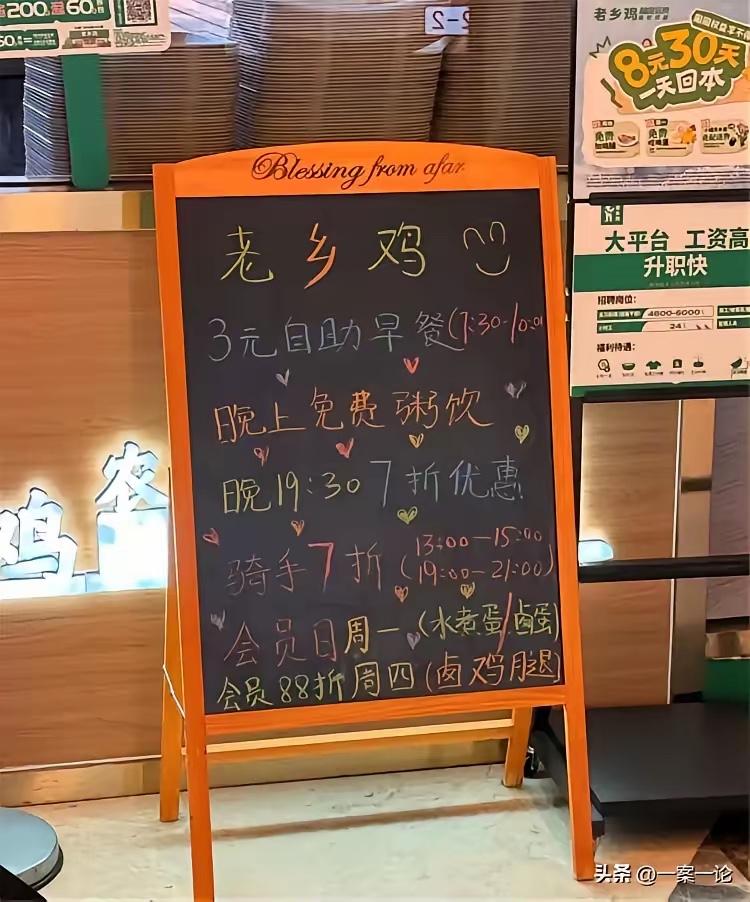 200 满60
60元
2-2
Blessing from afar
老乡鸡
3元自助早餐(7:30-10:0
晚上免费粥饮
晚19:30 7折优惠
骑手7折(13:00—15:00
19:00—21:00)
会员日周一(水煮蛋/卤蛋)
会员88折周四(卤鸡腿)
鸡 农
老乡鸡
8元30天
一天回本
免费
免费
大平台 工资高
升职快
招聘岗位:
4800-6000
24
福利待遇:
头条 @一案一论